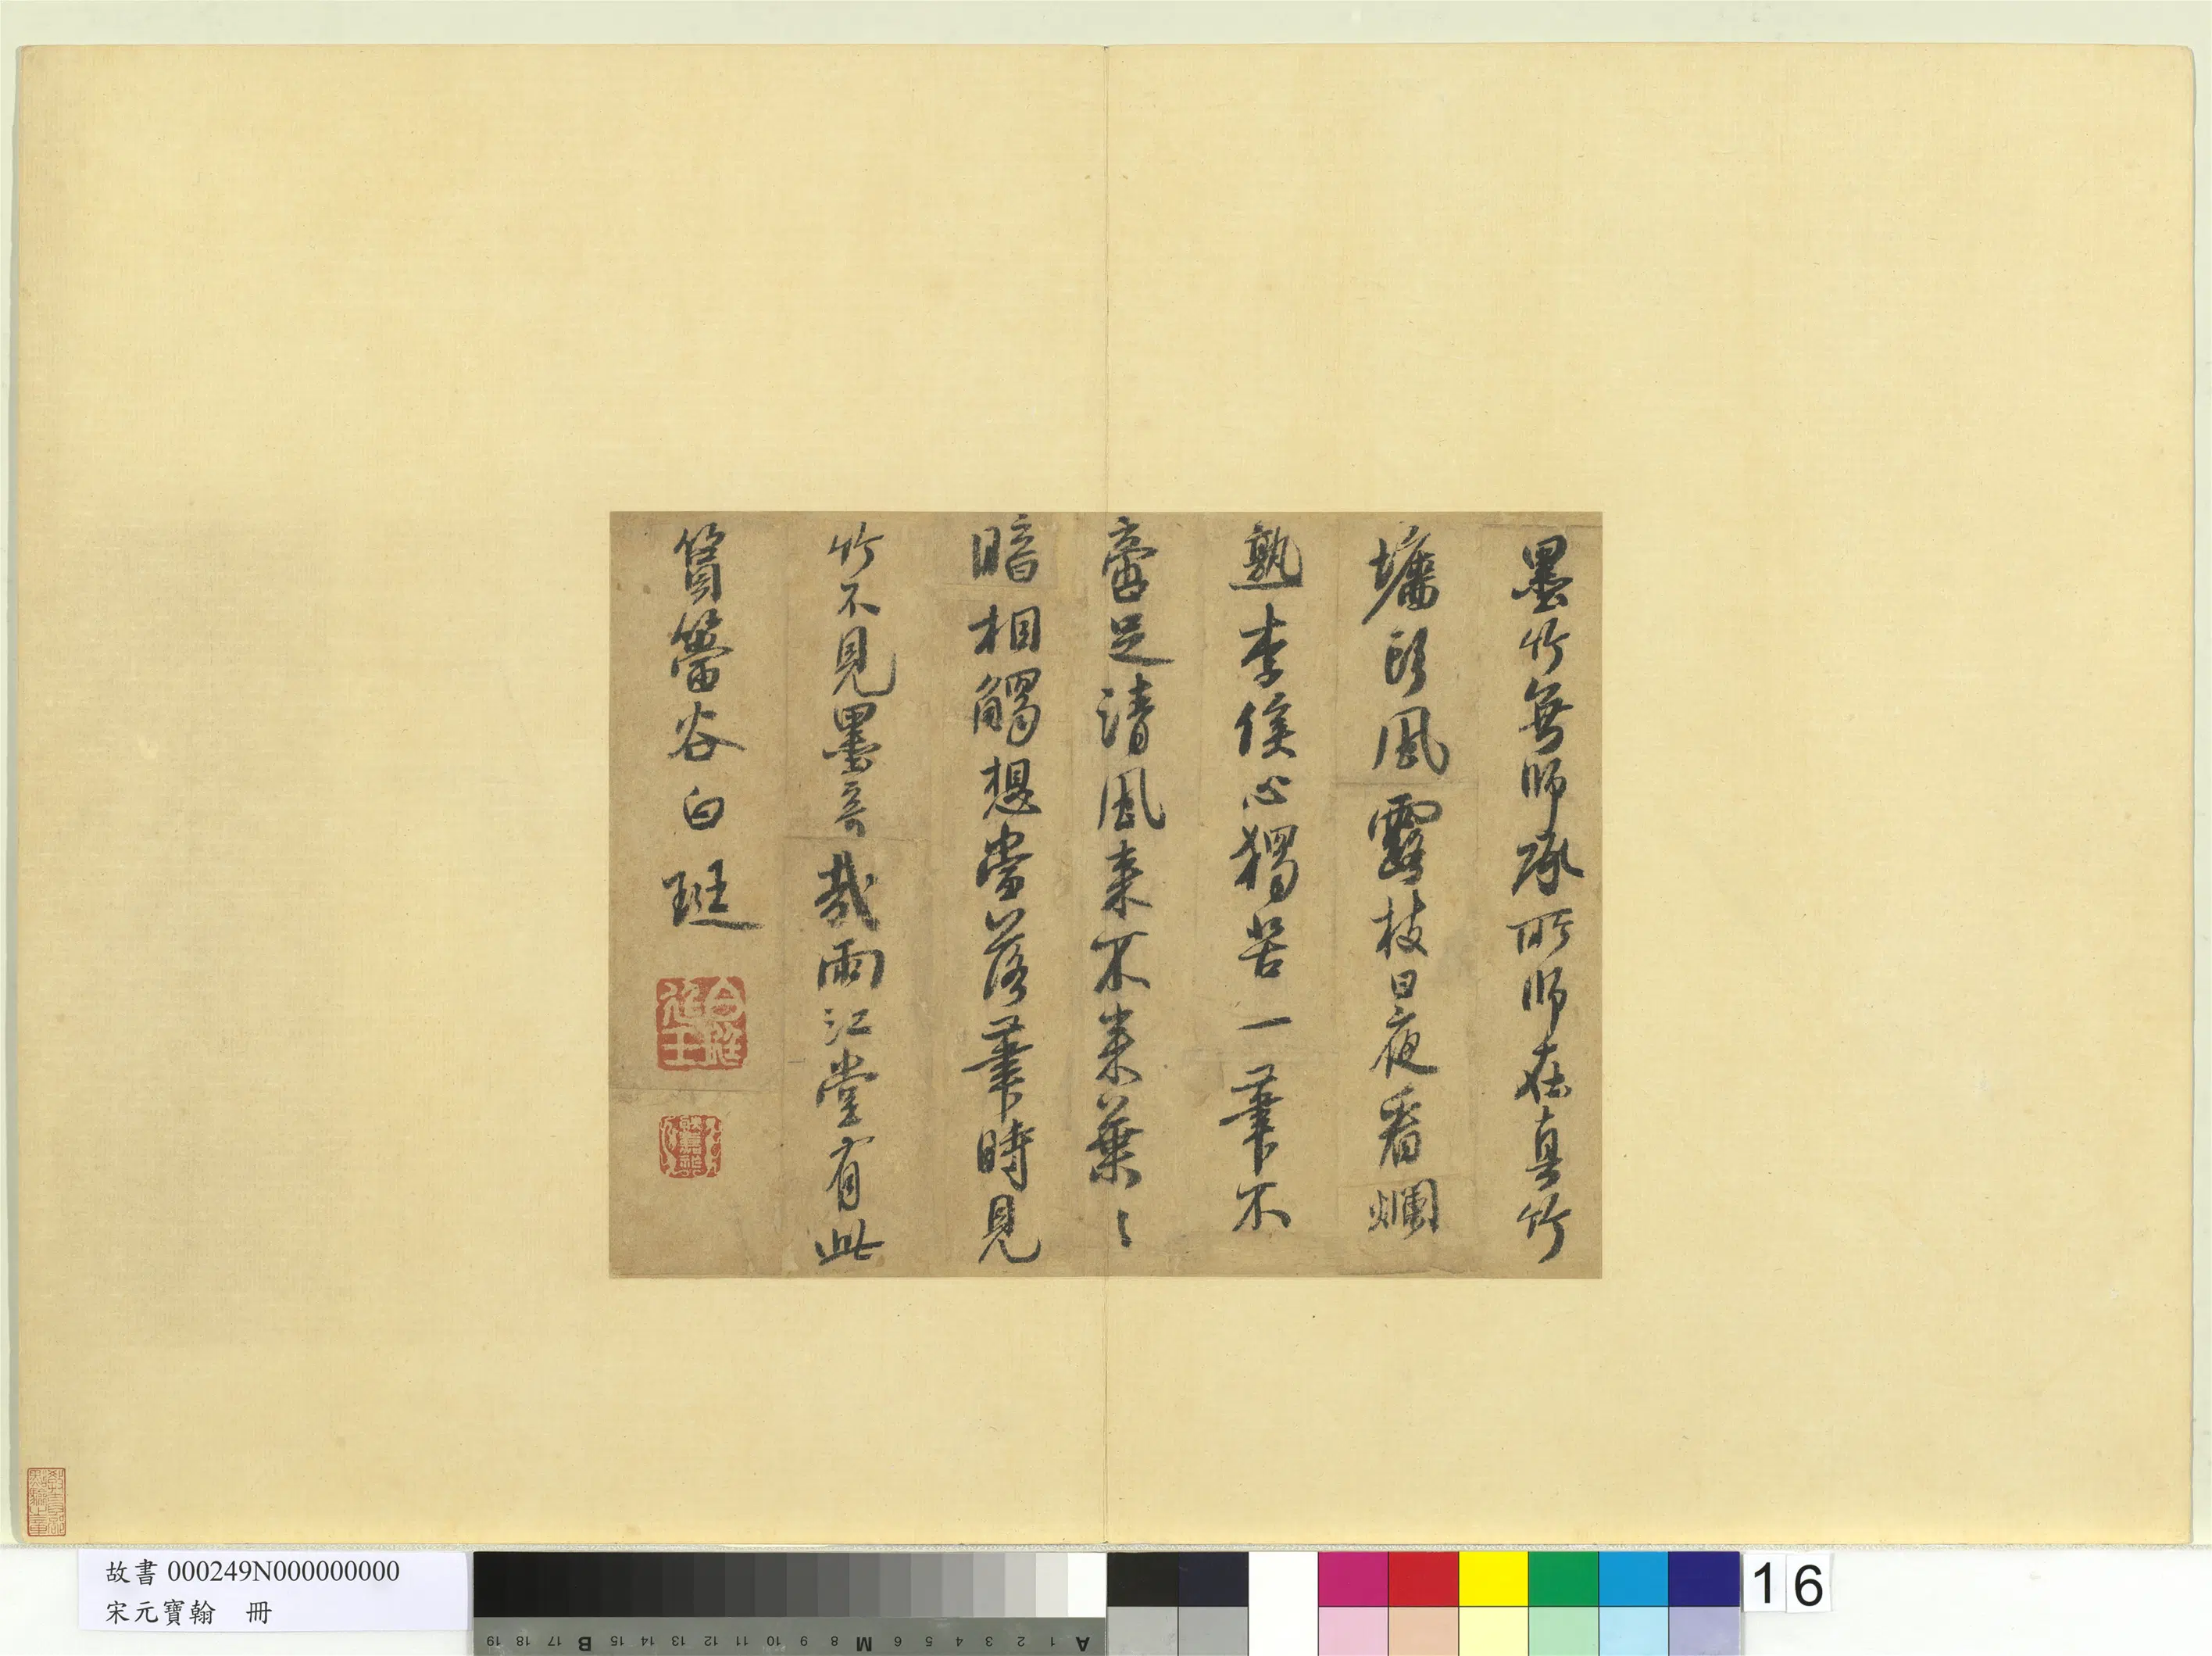 墨竹無師承所師在真竹
墻頭風露枝日夜看爛
熟李侯心獨苦一筆不
啻足清風來不來葉〻
暗相觸想當落筆時見
竹不見墨奇哉雨江堂有此
篔簹谷白珽
故書 000249N000000000
宋元寶翰 冊
19 18 17 B 16 15 14 13 12 11 10 9 8 M 6 5 4 3 2 1 A
16